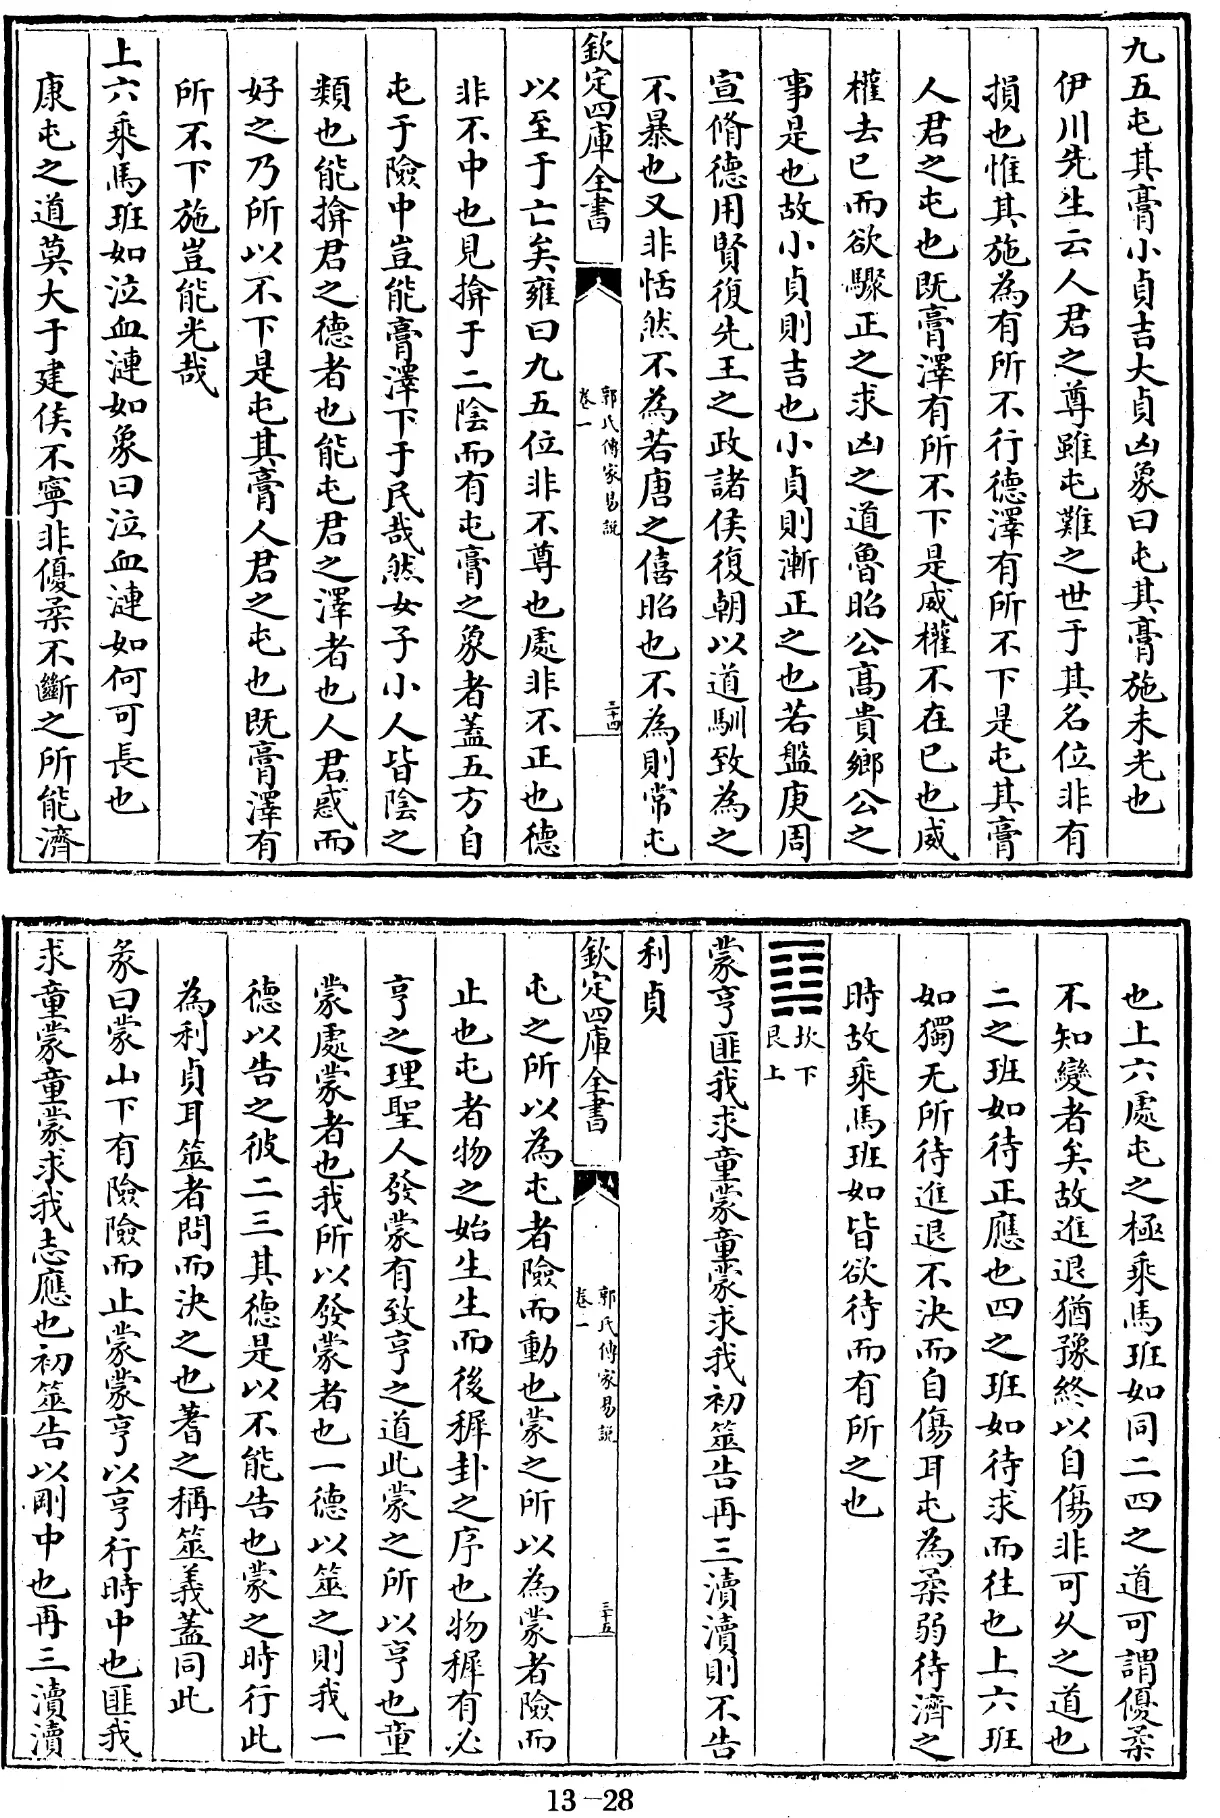 九五屯其膏小貞吉大貞凶象曰屯其膏施未光也
伊川先生云人君之尊雖屯難之世于其名位非有
損也惟其施為有所不行德澤有所不下是屯其膏
人君之屯也既膏澤有所不下是威權不在已也威
權去已而欲驟正之求凶之道魯昭公高貴鄉公之
事是也故小貞則吉也小貞則漸正之也若盤庚周
宣脩德用賢復先王之政諸侯復朝以道馴致為之
不暴也又非恬然不為若唐之僖昭也不為則常屯
欽定四庫全書
郭氏傳家易說
卷一
三十四
以至于亡矣雍曰九五位非不尊也處非不正也德
非不中也見揜于二陰而有屯膏之象者蓋五方自
屯于險中豈能膏澤下于民哉然女子小人皆陰之
類也能揜君之德者也能屯君之澤者也人君惑而
好之乃所以不下是屯其膏人君之屯也既膏澤有
所不下施豈能光哉
上六乘馬班如泣血漣如象曰泣血漣如何可長也
康屯之道莫大于建侯不寧非優柔不斷之所能濟
也上六處屯之極乘馬班如同二四之道可謂優柔
不知變者矣故進退猶豫終以自傷非可久之道也
二之班如待正應也四之班如待求而往也上六班
如獨无所待進退不決而自傷耳屯為柔弱待濟之
時故乘馬班如皆欲待而有所之也
坎下
艮上
蒙亨匪我求童蒙童蒙求我初筮告再三瀆瀆則不告
利貞
欽定四庫全書
郭氏傳家易說
卷一
三十五
屯之所以為屯者險而動也蒙之所以為蒙者險而
止也屯者物之始生生而後穉卦之序也物穉有必
亨之理聖人發蒙有致亨之道此蒙之所以亨也童
蒙處蒙者也我所以發蒙者也一德以筮之則我一
德以告之彼二三其德是以不能告也蒙之時行此
為利貞耳筮者問而決之也蓍之稱筮義蓋同此
彖曰蒙山下有險險而止蒙蒙亨以亨行時中也匪我
求童蒙童蒙求我志應也初筮告以剛中也再三瀆瀆
13-28